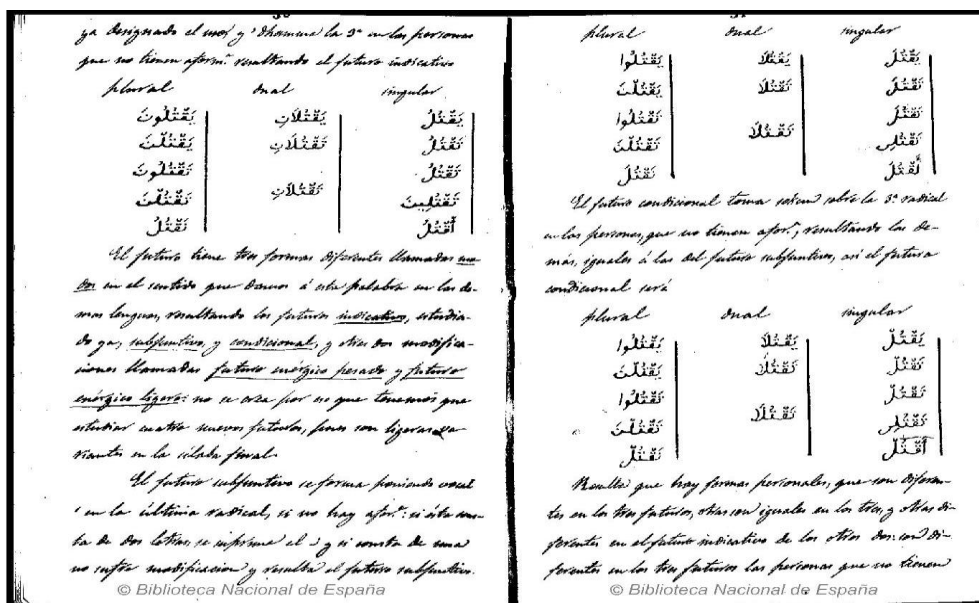 ya designado el uso; y ' dhamma la 3ª en las personas
que no tienen aform.ª resultando el futuro indicativo
plural dual singular
يَقْتُلُونَ يَقْتُلَانِ يَقْتُلُ
يَقْتُلْنَ تَقْتُلَانِ تَقْتُلُ
تَقْتُلُونَ تَقْتُلُ
تَقْتُلْنَ تَقْتُلَانِ تَقْتُلِينَ
نَقْتُلُ أَقْتُلُ
El futuro tiene tres formas diferentes llamadas mo-
dos en el sentido que damos á esta palabra en las de-
mas lenguas, resultando los futuros indicativo, estudia-
do ya, subfuntivo, y condicional, y otras dos modifica-
ciones llamadas futuro enérgico pesado y futuro
enérgico ligero: no se crea por eso que tenemos que
estudiar cuatro nuevos futuros, pues son ligeras va-
riantes en la sílaba final.
El futuro subfuntivo se forma poniendo vocal
' en la última radical, si no hay afor.ª: si ésta cons-
ta de dos letras, se suprime el ن y si consta de una
no sufre modificacion y resulta el futuro subfuntivo.
© Biblioteca Nacional de España
31
plural dual singular
يَقْتُلُوا يَقْتُلَا يَقْتُلَ
يَقْتُلْنَ تَقْتُلَا تَقْتُلَ
تَقْتُلُوا تَقْتُلَ
تَقْتُلْنَ تَقْتُلَا تَقْتُلِى
نَقْتُلَ أَقْتُلَ
El futuro condicional toma socun sobre la 3ª radical
en las personas, que no tienen afor.ª, resultando las de-
más, iguales á las del futuro subfuntivo, así el futuro
condicional será
plural dual singular
يَقْتُلُوا يَقْتُلَا يَقْتُلْ
يَقْتُلْنَ تَقْتُلَا تَقْتُلْ
تَقْتُلُوا تَقْتُلْ
تَقْتُلْنَ تَقْتُلَا تَقْتُلِى
نَقْتُلْ أَقْتُلْ
Resulta que hay formas personales, que son diferen-
tes en los tres futuros, otras son iguales en los tres, y otras di-
ferentes en el futuro indicativo de los otros dos: son di-
ferentes en los tres futuros las personas que no tienen
© Biblioteca Nacional de España